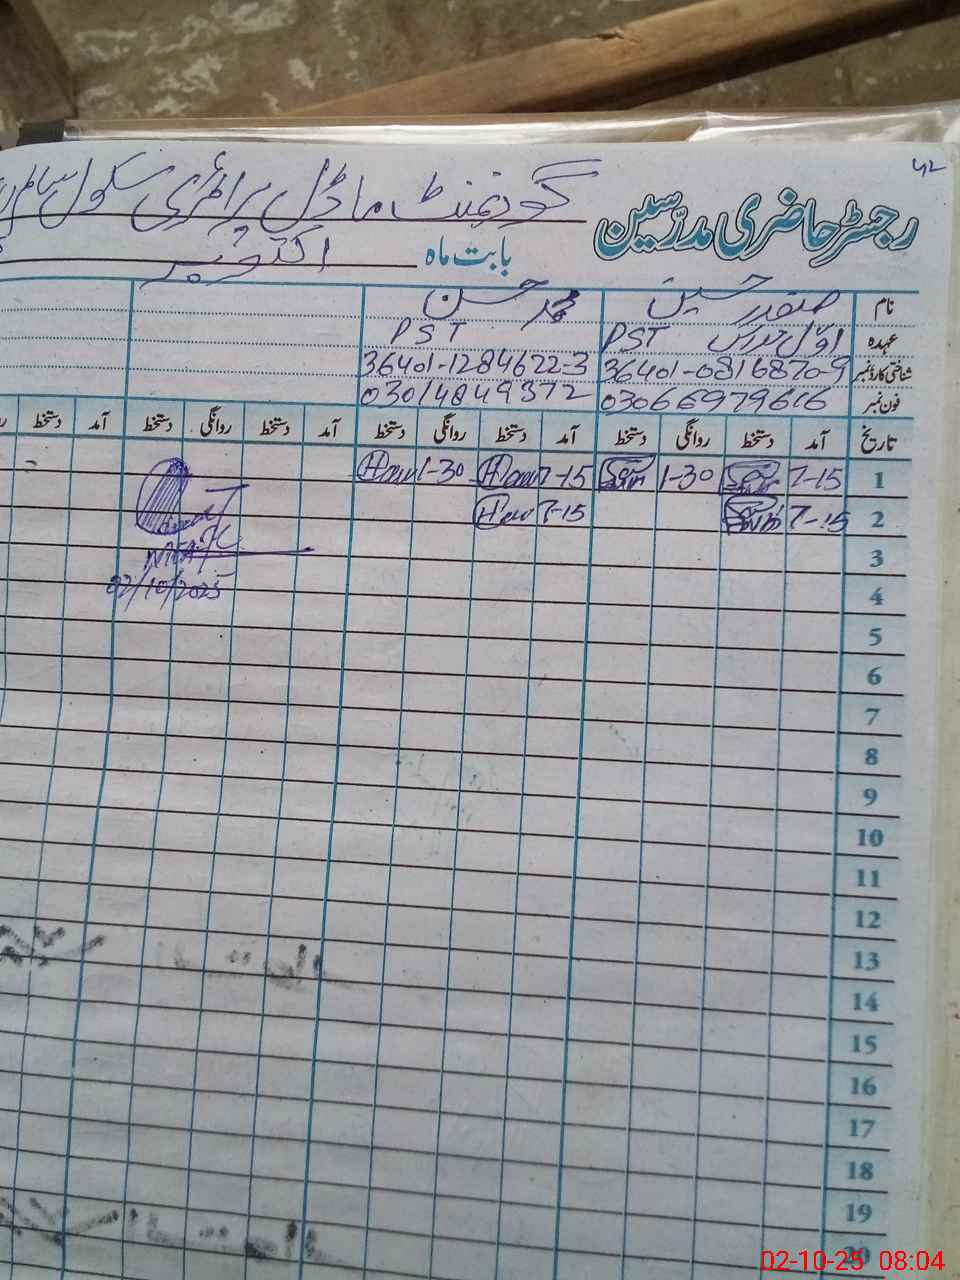 ۴۲
رجسٹر حاضری مدرسین گورنمنٹ ماڈل پرائمری سکول
بابت ماہ اکتوبر
نام صفدر حسین محمد حسن
عہدہ اوّل مدرس PST PST
شناختی کارڈ نمبر 36401-0816870-9 36401-1284622-3
فون نمبر 03066979616 03014849372
تاریخ آمد دستخط روانگی دستخط آمد دستخط روانگی دستخط آمد دستخط روانگی دستخط آمد دستخط
1 7-15 1-30 7-15 1-30
2 7-15 7-15
3
02/10/2025
4
5
6
7
8
9
10
11
12
13
14
15
16
17
18
19
20
02-10-25 08:04